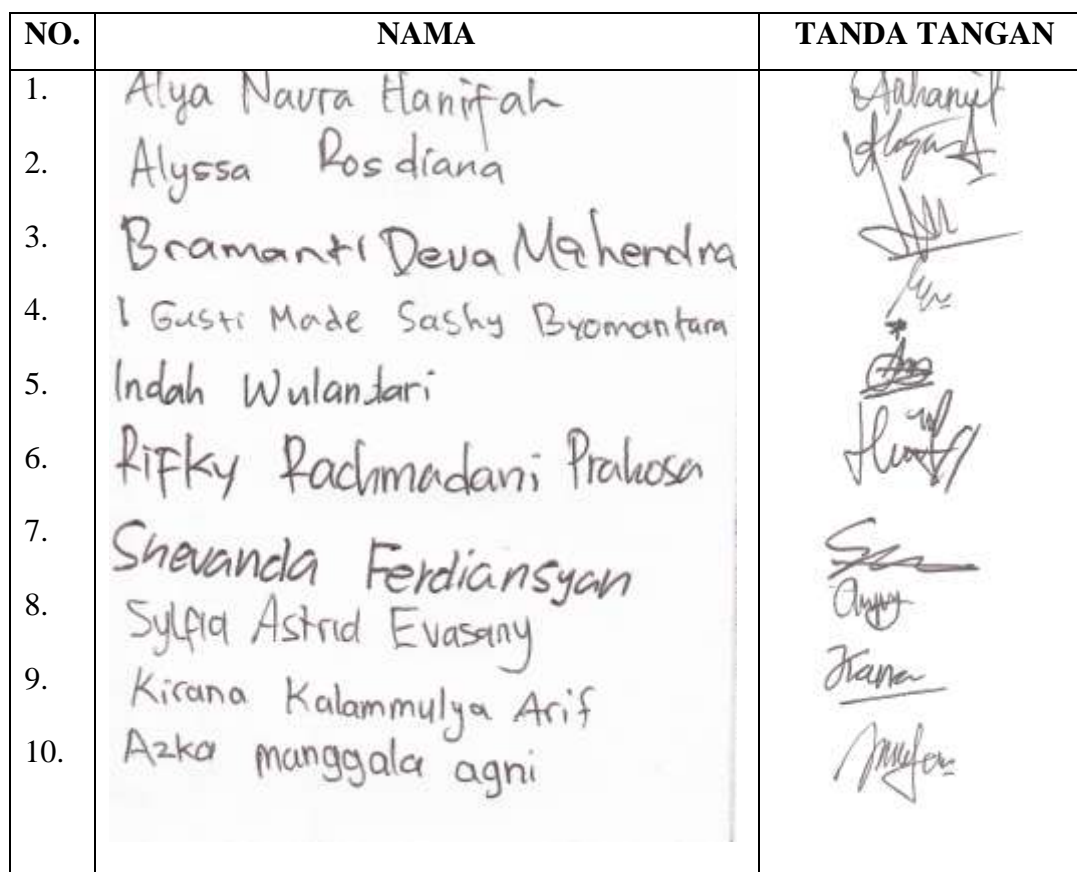 NO. NAMA TANDA TANGAN
1. Alya Navra Hanifah
2. Alyssa Rosdiana
3. Bramanti Deva Mahendra
4. I Gusti Made Sashy Byomantara
5. Indah Wulandari
6. Rifky Rachmadani Prakosa
7. Shevanda Ferdiansyah
8. Sylfia Astrid Evasany
9. Kirana Kalammulya Arif
10. Azka manggala agni